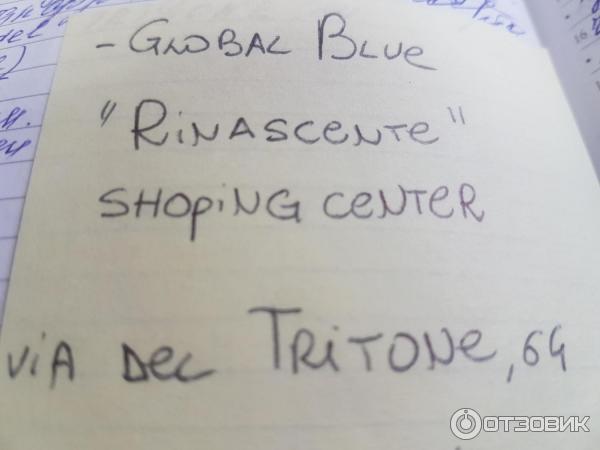 - GLOBAL BLUE
"RiNASCENTE"
SHOPiNG CENTER
ViA DEL TRiTONe, 64
16
ОТЗОВИК